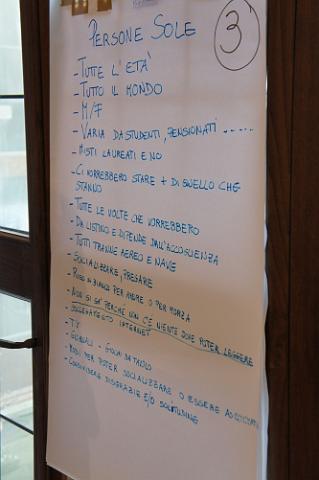 PERSONE SOLE
3
- TUTTE L'ETÀ
- TUTTO IL MONDO
- M/F
- VARIA DA STUDENTI, PENSIONATI ......
- MISTI LAUREATI E NO
- CI VORREBBERO STARE + DI QUELLO CHE
STANNO
- TUTTE LE VOLTE CHE VORREBBERO
- DA LISTINO E DIPENDE DALL'ACCOGLIENZA
- TUTTI TRANNE AEREO E NAVE
- SOCIALIZZARE, PREGARE
- PER AMORE O PER FORZA
- NON SI SA PERCHÉ NON C'È NIENTE DOVE POTER LEGGERE
SUGGERIMENTO INTERNET
- TV
- GIORNALI - GIOCHI DA TAVOLO
- MODI PER POTER SOCIALIZZARE O ESSERE ASCOLTATI
- CONDIVIDERE DISGRAZIE E/O SOLITUDINE